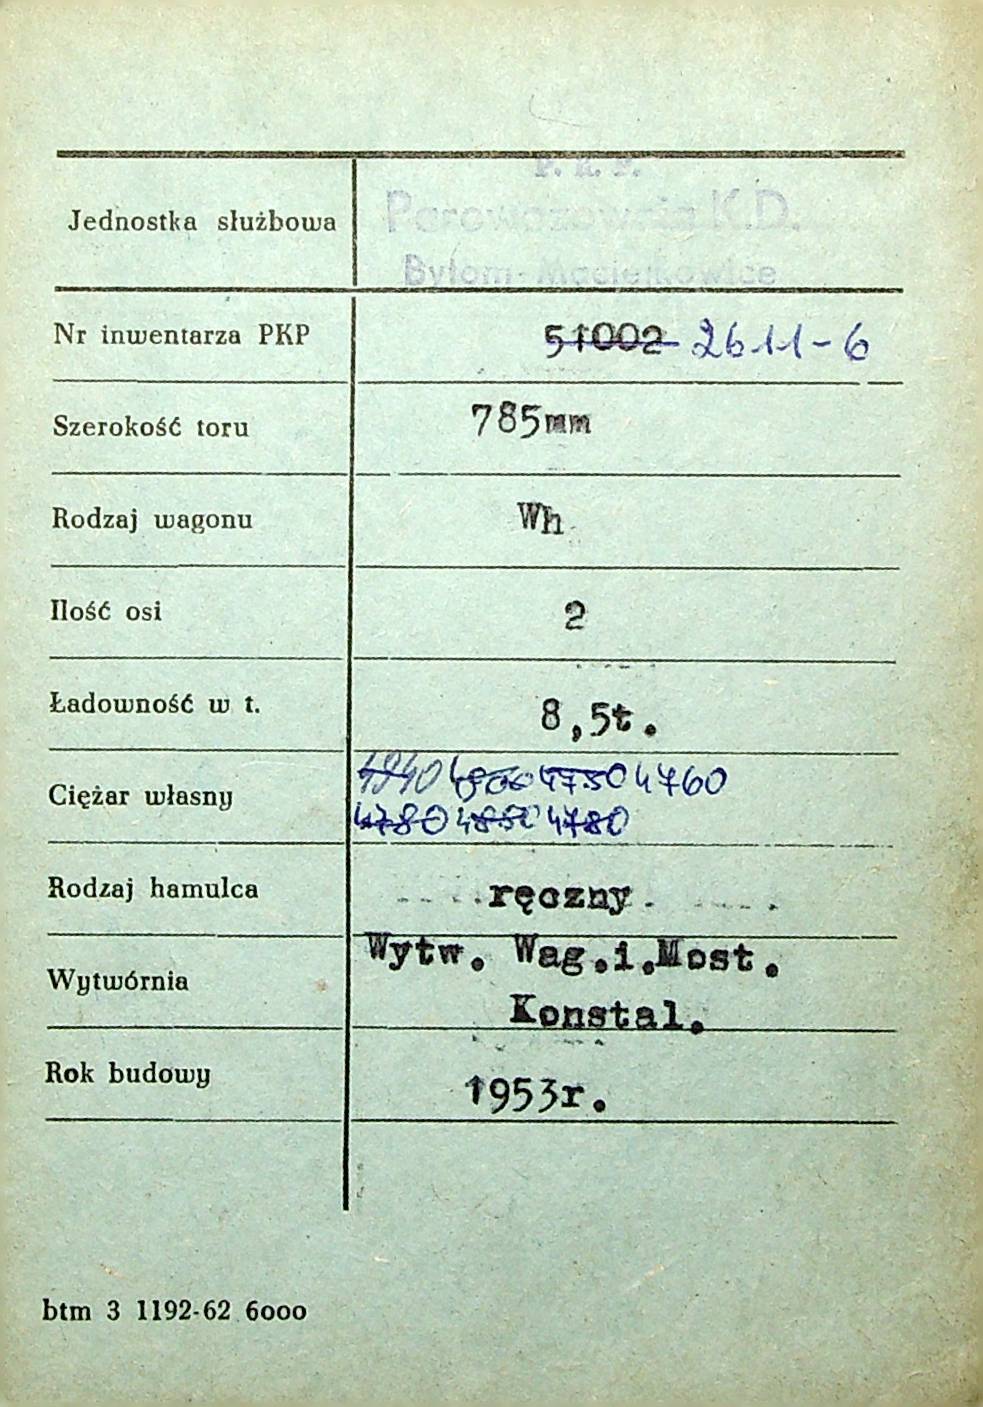 P. K. P.
Jednostka służbowa Parowozownia K.D.
Bytom-Maciejkowice
Nr inwentarza PKP 51002 2611-6
Szerokość toru 785mm
Rodzaj wagonu Wh
Ilość osi 2
Ładowność w t. 8,5t.
4940 4800 4750 4760
Ciężar własny
4780 4850 4780
Rodzaj hamulca ręczny.
Wytw. Wag.i.Most.
Wytwórnia
Konstal.
Rok budowy 1953r.
btm 3 1192-62 6ooo